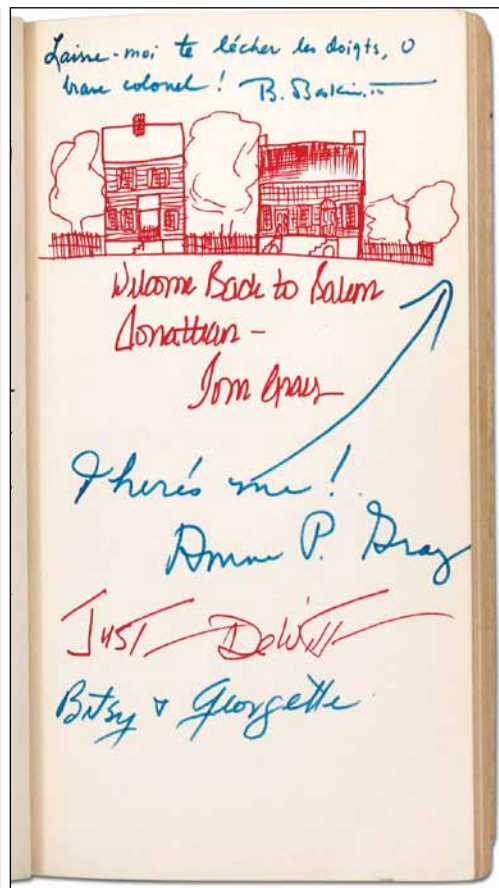 Laisse-moi te lécher les doigts, O
brave colonel! B.
Welcome Back to Salem
Jonathan -
Tom Gray
There's me!
P. Gray
JUST DeWitt
Bitsy & Georgette